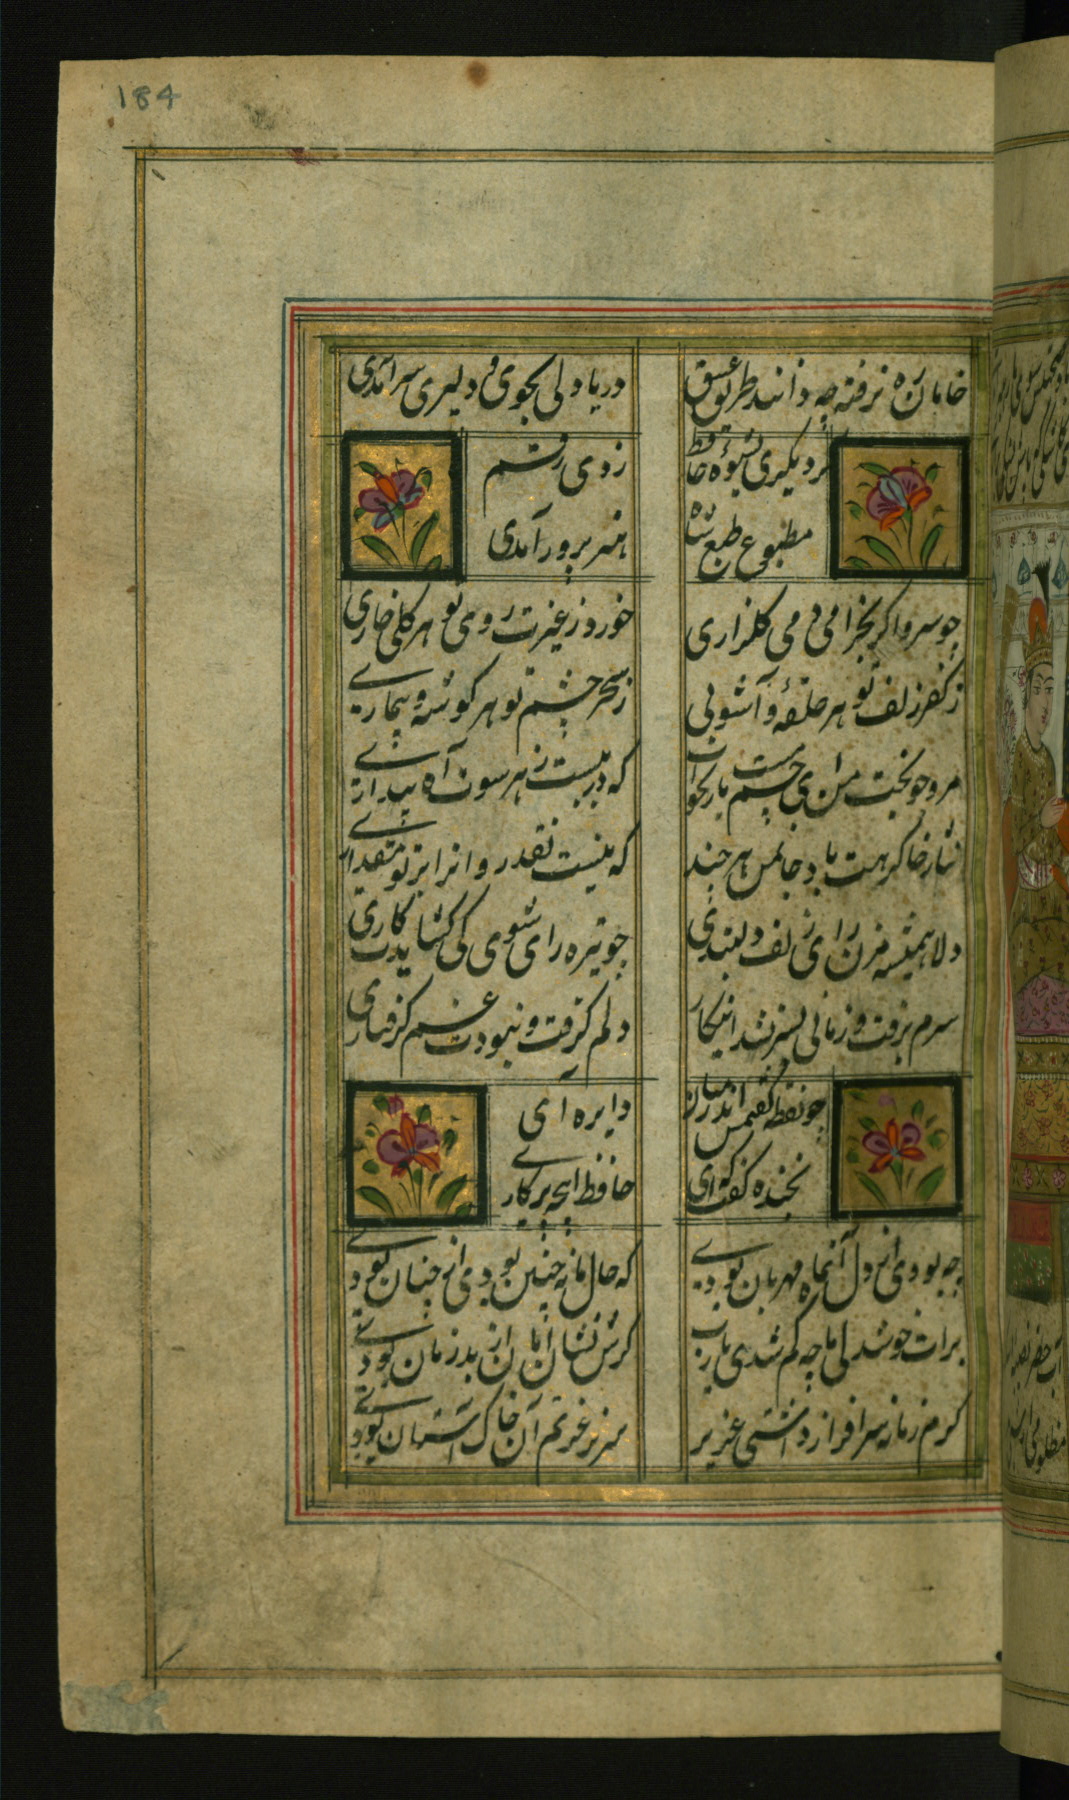 184
خامان ره نرفته چه دانند طریق عشق
دریا دلی بجوی و دلیری سرآمدی
کر دیکری بشیوۀ حافظ
زدی رقم
مطبوع طبع شاه
هنر پرور آمدی
چو سرو اکر بخرامی دمی کلزاری
خورد ز غیرت روی تو هر کلی خاری
ز کفر زلف تو هر حلقۀ و آشوبی
ز سحر چشم تو هر کوشه و بیماری
مرو چو بخت من ای چشم مست یار بخواب
که در پیست ز هر سوت آه بیداری
نثار خاک رهت باد جانمن هر چند
که نیست نقد روانرا بر تو مقداری
دلا همیشه مزن رای زلف دلبندی
چو تیره رای شوی کی کشایدت کاری
سرم برفت و زمانی بسر نشد اینکار
دلم کرفت و نبودت غم کرفتاری
چو نقطه کفتمش اندر میان
دایره آی
بخنده کفت که ای
حافظ اینچه پرکار
چه بودی ار دل آنماه مهربان بودی
که حال ما نه چنین بودی ار چنان بودی
برات خوشدلی ما چه کم شدی یارب
کرش نشان امان از بد زمان بودی
کرم زمانه سرافراز داشتی عزیز
سریر عزتم آن خاک آستان بودی